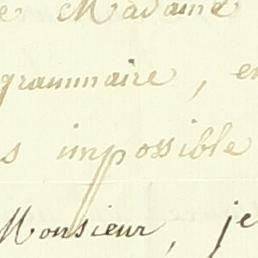 e Madame
grammaire, en
s impossible
Monsieur, je